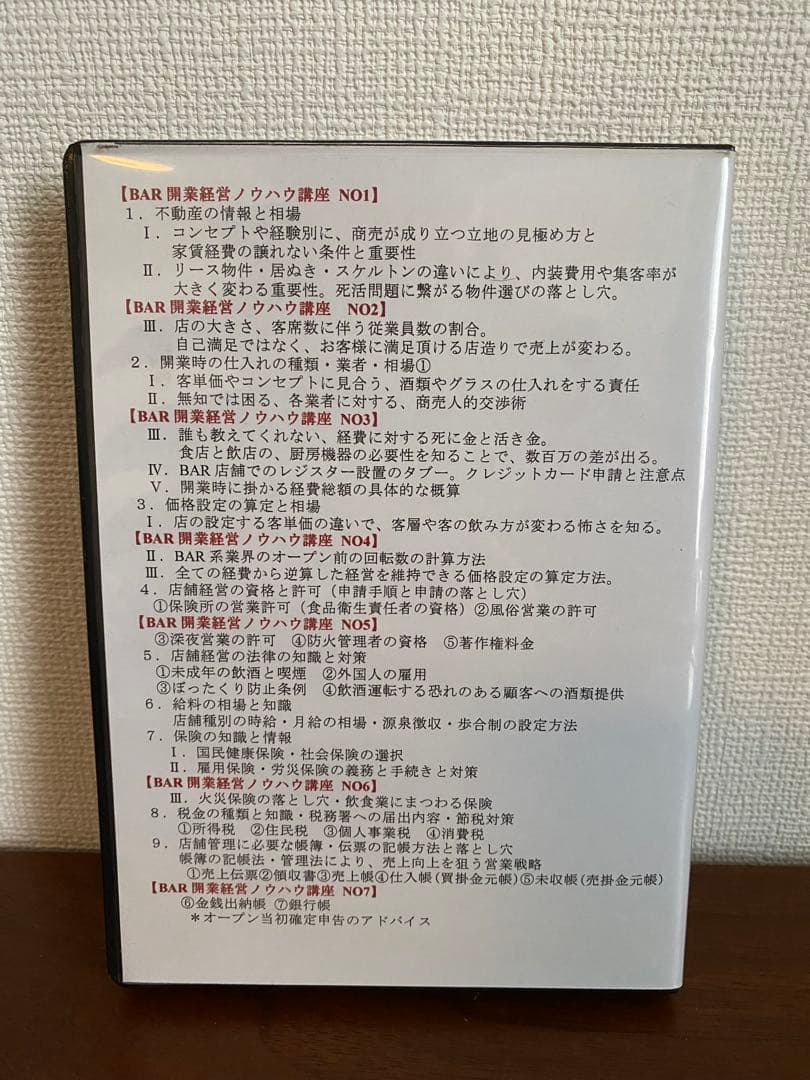 【BAR 開業経営ノウハウ講座 NO1】
1．不動産の情報と相場
Ⅰ．コンセプトや経験別に、商売が成り立つ立地の見極め方と
家賃経費の譲れない条件と重要性
Ⅱ．リース物件・居ぬき・スケルトンの違いにより、内装費用や集客率が
大きく変わる重要性。死活問題に繋がる物件選びの落とし穴。
【BAR 開業経営ノウハウ講座 NO2】
Ⅲ．店の大きさ、客席数に伴う従業員数の割合。
自己満足ではなく、お客様に満足頂ける店造りで売上が変わる。
2．開業時の仕入れの種類・業者・相場①
Ⅰ．客単価やコンセプトに見合う、酒類やグラスの仕入れをする責任
Ⅱ．無知では困る、各業者に対する、商売人的交渉術
【BAR 開業経営ノウハウ講座 NO3】
Ⅲ．誰も教えてくれない、経費に対する死に金と活き金。
食店と飲店の、厨房機器の必要性を知ることで、数百万の差が出る。
Ⅳ．BAR 店舗でのレジスター設置のタブー。クレジットカード申請と注意点
Ⅴ．開業時に掛かる経費総額の具体的な概算
3．価格設定の算定と相場
Ⅰ．店の設定する客単価の違いで、客層や客の飲み方が変わる怖さを知る。
【BAR 開業経営ノウハウ講座 NO4】
Ⅱ．BAR 系業界のオープン前の回転数の計算方法
Ⅲ．全ての経費から逆算した経営を維持できる価格設定の算定方法。
4．店舗経営の資格と許可（申請手順と申請の落とし穴）
①保険所の営業許可（食品衛生責任者の資格）②風俗営業の許可
【BAR 開業経営ノウハウ講座 NO5】
③深夜営業の許可 ④防火管理者の資格 ⑤著作権料金
5．店舗経営の法律の知識と対策
①未成年の飲酒と喫煙 ②外国人の雇用
③ぼったくり防止条例 ④飲酒運転する恐れのある顧客への酒類提供
6．給料の相場と知識
店舗種別の時給・月給の相場・源泉徴収・歩合制の設定方法
7．保険の知識と情報
Ⅰ．国民健康保険・社会保険の選択
Ⅱ．雇用保険・労災保険の義務と手続きと対策
【BAR 開業経営ノウハウ講座 NO6】
Ⅲ．火災保険の落とし穴・飲食業にまつわる保険
8．税金の種類と知識・税務署への届出内容・節税対策
①所得税 ②住民税 ③個人事業税 ④消費税
9．店舗管理に必要な帳簿・伝票の記帳方法と落とし穴
帳簿の記帳法・管理法により、売上向上を狙う営業戦略
①売上伝票②領収書③売上帳④仕入帳(買掛金元帳)⑤未収帳(売掛金元帳)
【BAR 開業経営ノウハウ講座 NO7】
⑥金銭出納帳 ⑦銀行帳
＊オープン当初確定申告のアドバイス